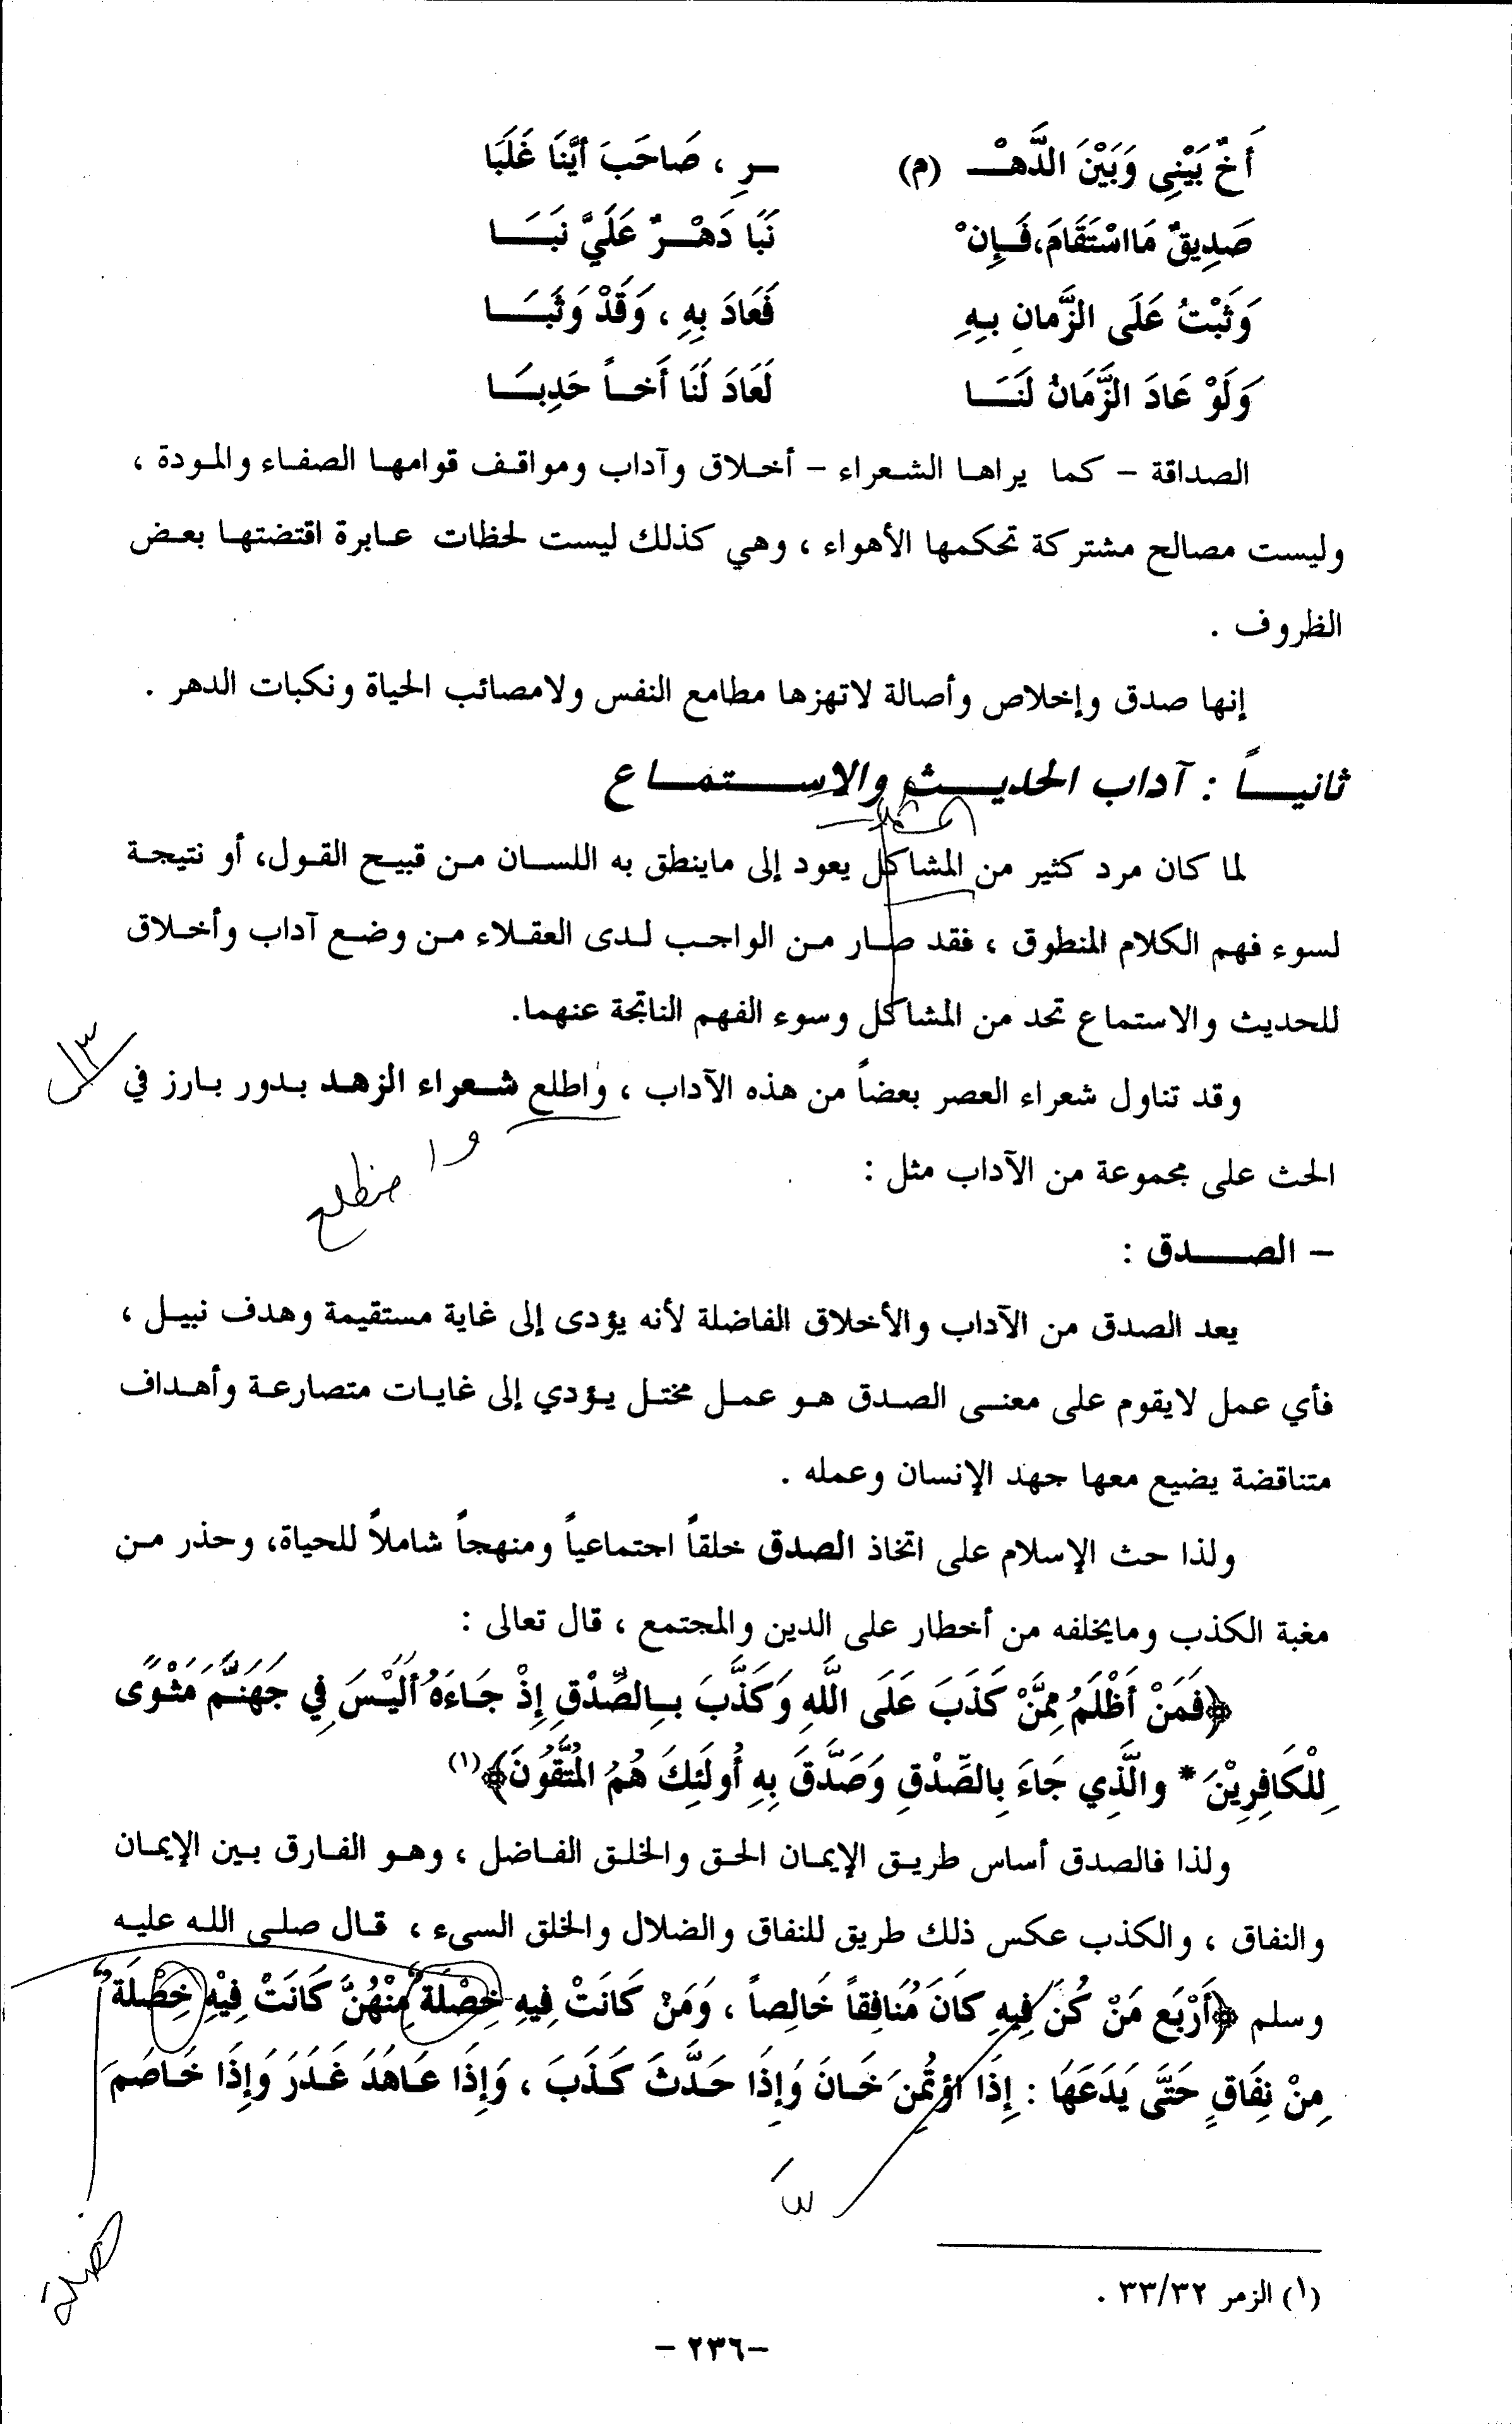 أَخٌ بَيْنِي وَبَيْنَ الدَّهْـ (م) ـرِ ، صَاحَبَ أَيَّنَا غَلَبَا
صَدِيقٌ مَااسْتَقَامَ،فَـإِنْ نَبَا دَهْـرٌ عَلَيَّ نَبَـا
وَثَبْتُ عَلَى الزَّمانِ بـِهِ فَعَادَ بِهِ ، وَقَدْ وَثَبَـا
وَلَوْ عَادَ الزَّمَانُ لَنَـا لَعَادَ لَنَا أَخـاً حَدِبـَا
الصداقة - كما يراها الشعراء - أخلاق وآداب ومواقف قوامها الصفاء والمودة ،
وليست مصالح مشتركة تحكمها الأهواء ، وهي كذلك ليست لحظات عابرة اقتضتها بعض
الظروف .
إنها صدق وإخلاص وأصالة لاتهزها مطامع النفس ولامصائب الحياة ونكبات الدهر .
ثانيـاً : آداب الحديـث والاستمـاع
المشكلات
لما كان مرد كثير من المشاكل يعود إلى ماينطق به اللسان من قبيح القول، أو نتيجة
لسوء فهم الكلام المنطوق ، فقد صار من الواجب لدى العقلاء من وضع آداب وأخلاق
للحديث والاستماع تحد من المشاكل وسوء الفهم الناتجة عنهما.
وقد تناول شعراء العصر بعضاً من هذه الآداب ، واطلع شعراء الزهد بدور بارز في
واضطلع
الحث على مجموعة من الآداب مثل :
- الصـدق :
يعد الصدق من الآداب والأخلاق الفاضلة لأنه يؤدى إلى غاية مستقيمة وهدف نبيل ،
فأي عمل لايقوم على معنى الصدق هو عمل مختل يؤدي إلى غايات متصارعة وأهداف
متناقضة يضيع معها جهد الإنسان وعمله .
ولذا حث الإسلام على اتخاذ الصدق خلقاً اجتماعياً ومنهجاً شاملاً للحياة، وحذر من
مغبة الكذب ومايخلفه من أخطار على الدين والمجتمع ، قال تعالى :
﴿فَمَنْ أَظْلَمُ مِمَّنْ كَذَبَ عَلَى اللَّهِ وَكَذَّبَ بـِالصِّدْقِ إِذْ جَـاءَهُ أَلَيْسَ فِي جَهَنَّمَ مَثْوًى
لِلْكَافِرِيْنَ * والَّذِي جَاءَ بِالصِّدْقِ وَصَدَّقَ بِهِ أُولَئِكَ هُمُ الْمُتَّقُونَ﴾(١)
ولذا فالصدق أساس طريق الإيمان الحق والخلق الفاضل ، وهو الفارق بين الإيمان
والنفاق ، والكذب عكس ذلك طريق للنفاق والضلال والخلق السيء ، قال صلى الله عليه
وسلم ﴿أَرْبَع مَنْ كُنَ فِيهِ كَانَ مُنَافِقاً خَالِصاً ، وَمَنْ كَانَتْ فِيهِ خِصْلَة مِنْهُنَّ كَانَتْ فِيْهِ خِصْلَة
مِنْ نِفَاقٍ حَتَّى يَدَعَهَا : إِذَا اؤتُمِنَ خَـانَ وَإِذَا حَـدَّثَ كَـذَبَ ، وَإِذَا عَـاهَدَ غَـدَرَ وَإِذَا خَـاصَمَ
خصلة
(١) الزمر ٣٣/٣٢ .
-٢٣٦ -